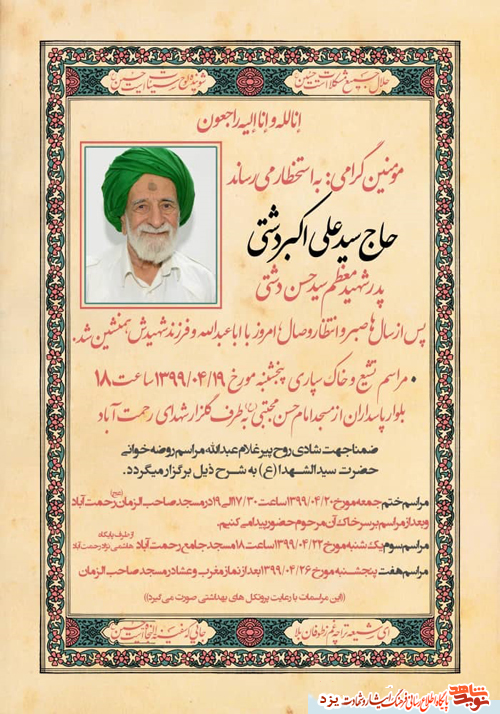 حلال جمیع مشکلات است حسین
شوینده لوح سیئات است حسین
انا لله و انا الیه راجعون
مومنین گرامی: به استحظار می رساند
حاج سید علی اکبر دشتی
پدر شهید معظم سید حسن دشتی
پس از سال ها صبر و انتظار وصال امروز با اباعبدالله و فرزند شهیدش همنشین شد.
• مراسم تشیع و خاک سپاری پنجشنبه مورخ ۱۳۹۹/۰۴/۱۹ ساعت ۱۸
بلوار پاسداران از مسجد امام حسن مجتبی (ع) به طرف گلزار شهدای رحمت آباد
ضمنا جهت شادی روح پیر غلام عبدالله مراسم روضه خوانی
حضرت سیدالشهدا (ع) به شرح ذیل برگزار میگردد.
مراسم ختم جمعه مورخ ۱۳۹۹/۰۴/۲۰ ساعت ۱۷/۳۰ الی ۱۹ در مسجد صاحب الزمان (عج) رحمت آباد
و بعد از مراسم بر سر خاک آن مرحوم حضور پیدا می کنیم.
مراسم سوم یک شنبه مورخ ۱۳۹۹/۰۴/۲۲ ساعت ۱۸ مسجد جامع رحمت آباد از طرف پایگاه هاشمی نژاد رحمت آباد
مراسم هفت پنجشنبه مورخ ۱۳۹۹/۰۴/۲۶ بعد از نماز مغرب و عشا در مسجد صاحب الزمان
((این مراسمات با رعایت پروتکل های بهداشتی صورت می گیرد))
ای شیعه ترا چه غم ز طوفان بلا
جایی که سفینة النجات است حسین
نوید شاهد
پایگاه اطلاع رسانی فرهنگ ایثار و شهادت یزد